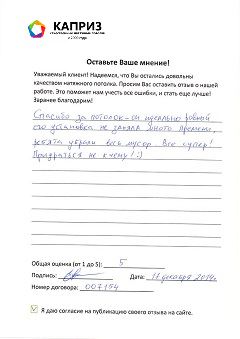 КАПРИЗ
с 2000 года
Оставьте Ваше мнение!
Уважаемый клиент! Надеемся, что Вы остались довольны
качеством натяжного потолка. Просим Вас оставить отзыв о нашей
работе. Это поможет нам учесть все ошибки, и стать еще лучше!
Заранее благодарим!
Спасибо за потолок - он идеально ровный
его установка не заняла много времени,
ребята убрали весь мусор. Все супер!
Придраться не к чему! :)
Общая оценка (от 1 до 5): 5
Подпись: Дата: 11 декабря 2014.
Номер договора: 007154
Я даю согласие на публикацию своего отзыва на сайте.